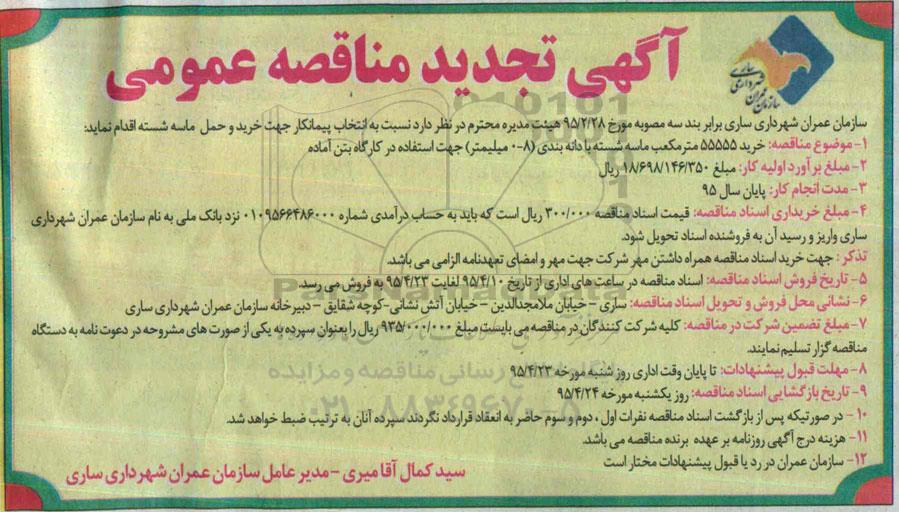 آگهی تجدید مناقصه عمومی
سازمان عمران
شهرداری ساری
سازمان عمران شهرداری ساری برابر بند سه مصوبه مورخ ۹۵/۲/۲۸ هیئت مدیره محترم در نظر دارد نسبت به انتخاب پیمانکار جهت خرید و حمل ماسه شسته اقدام نماید:
۱- موضوع مناقصه: خرید ۵۵۵۵۵ مترمکعب ماسه شسته با دانه بندی (۸-۰ میلیمتر) جهت استفاده در کارگاه بتن آماده
۲- مبلغ برآورد اولیه کار: مبلغ ۱۸/۶۹۸/۱۴۶/۳۵۰ ریال
۳- مدت انجام کار: پایان سال ۹۵
۴- مبلغ خریداری اسناد مناقصه: قیمت اسناد مناقصه ۳۰۰/۰۰۰ ریال است که باید به حساب درآمدی شماره ۰۱۰۹۵۶۶۴۸۶۰۰۰ نزد بانک ملی به نام سازمان عمران شهرداری
ساری واریز و رسید آن به فروشنده اسناد تحویل شود.
تذکر: جهت خرید اسناد مناقصه همراه داشتن مهر شرکت جهت مهر و امضای تعهدنامه الزامی می باشد.
۵- تاریخ فروش اسناد مناقصه: اسناد مناقصه در ساعت های اداری از تاریخ ۹۵/۴/۱۰ لغایت ۹۵/۴/۲۳ به فروش می رسد.
۶- نشانی محل فروش و تحویل اسناد مناقصه: ساری - خیابان ملامجدالدین - خیابان آتش نشانی-کوچه شقایق - دبیرخانه سازمان عمران شهرداری ساری
۷- مبلغ تضمین شرکت در مناقصه: کلیه شرکت کنندگان در مناقصه می بایست مبلغ ۹۳۵/۰۰۰/۰۰۰ ریال را بعنوان سپرده به یکی از صورت های مشروحه در دعوت نامه به دستگاه
مناقصه گزار تسلیم نمایند.
۸- مهلت قبول پیشنهادات: تا پایان وقت اداری روز شنبه مورخه ۹۵/۴/۲۳
۹- تاریخ بازگشایی اسناد مناقصه: روز یکشنبه مورخه ۹۵/۴/۲۴
۱۰- در صورتیکه پس از بازگشت اسناد مناقصه نفرات اول ، دوم و سوم حاضر به انعقاد قرارداد نگردند سپرده آنان به ترتیب ضبط خواهد شد.
۱۱- هزینه درج آگهی روزنامه بر عهده برنده مناقصه می باشد.
۱۲- سازمان عمران در رد یا قبول پیشنهادات مختار است
سید کمال آقامیری - مدیر عامل سازمان عمران شهرداری ساری